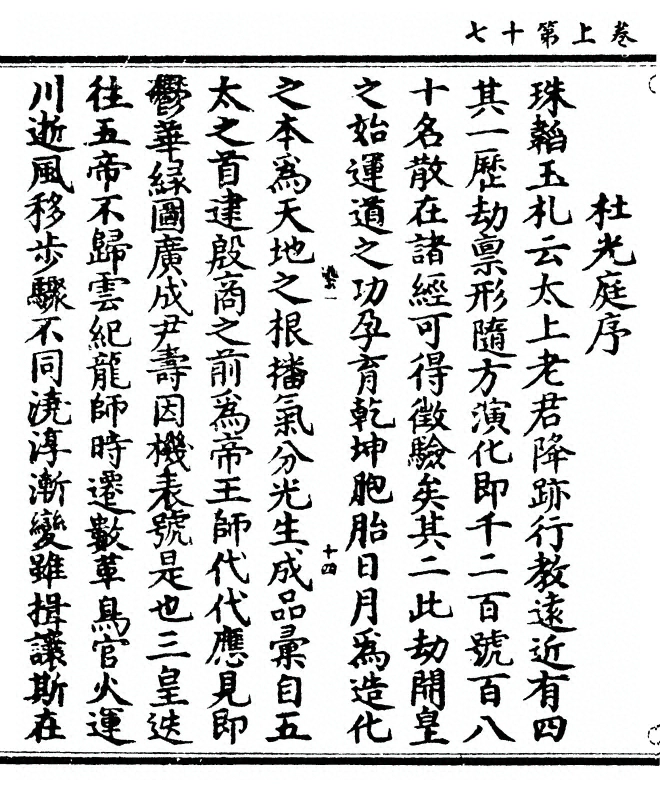 卷上第十七
杜光庭序
珠韜玉札云太上老君降跡行教遠近有四
其一歷劫禀形隨方演化即千二百號百八
十名散在諸經可得徵驗矣其二此劫開皇
之始運道之功孕育乾坤胞胎日月爲造化
十四
之本爲天地之根播氣分光生成品彙自五
太之首逮殷商之前爲帝王師代代應見即
鬱華緑圖廣成尹壽因機表號是也三皇迭
往五帝不歸雲紀龍師時遷數革鳥官火運
川逝風移步驟不同澆淳漸變雖揖讓斯在